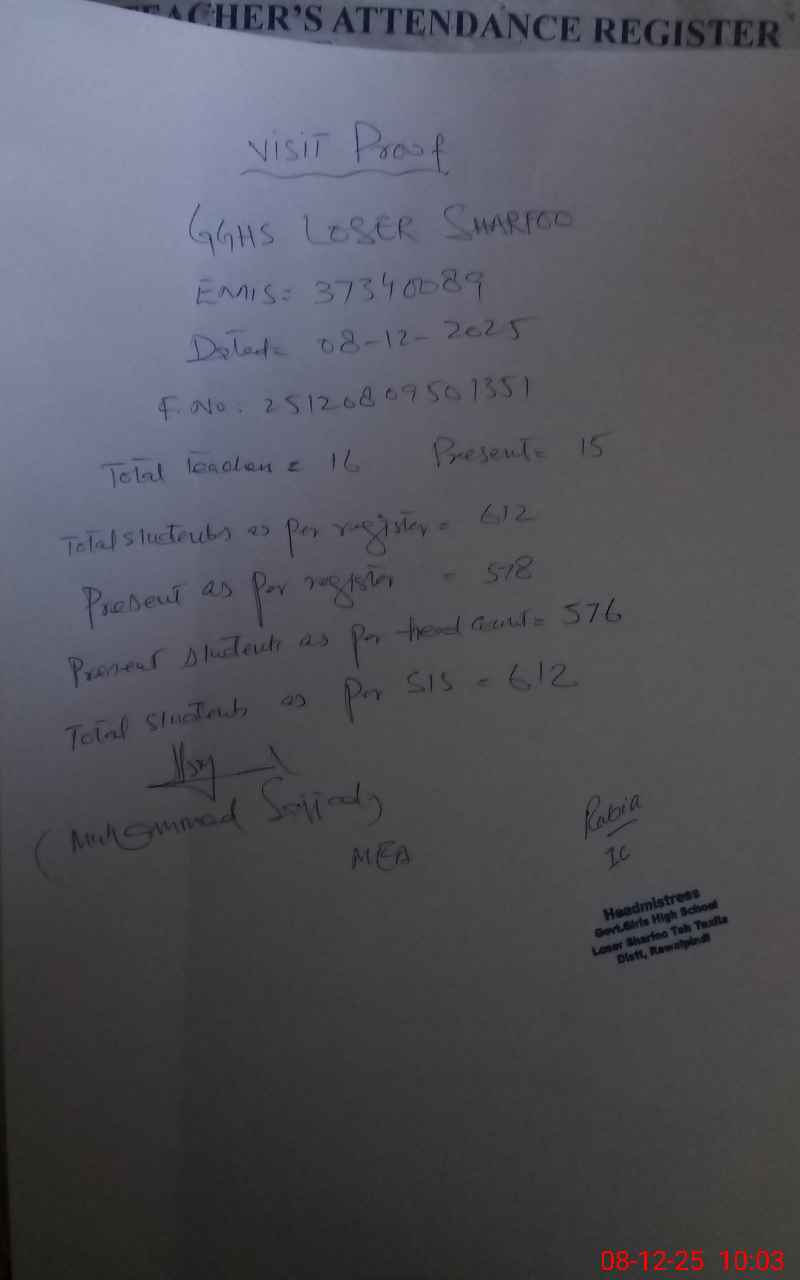 TEACHER'S ATTENDANCE REGISTER
Visit Proof
GGHS LOSER SHARFOO
EMIS= 37340089
Dated= 08-12-2025
F.No. 25120809501351
Total Teachers = 16 Present= 15
Total students as per register= 612
Present as per register = 578
Present students as per head count= 576
Total students as per SIS = 612
(Muhammad Sajjad)
MEA
Rabia
IC
Headmistress
Govt.Girls High School
Loser Sharfoo Teh Taxila
Distt, Rawalpindi
08-12-25 10:03